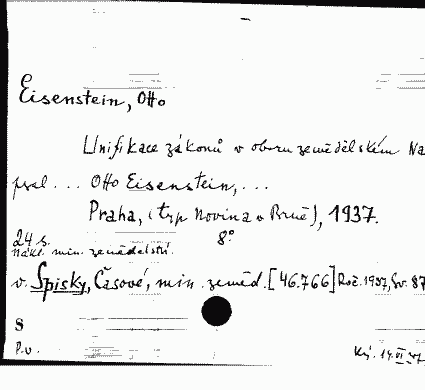 Eisenstein, Otto
Unifikace zákonů v oboru zemědělském Na
psal ... Otto Eisenstein, ...
Praha, (typ Novina v Brně), 1937.
24 s. 8°
nákl. min. zemědělství.
v. Spisky, Časové, min. zeměd. [46.766] Roč. 1937, sv. 87
S
P.v.